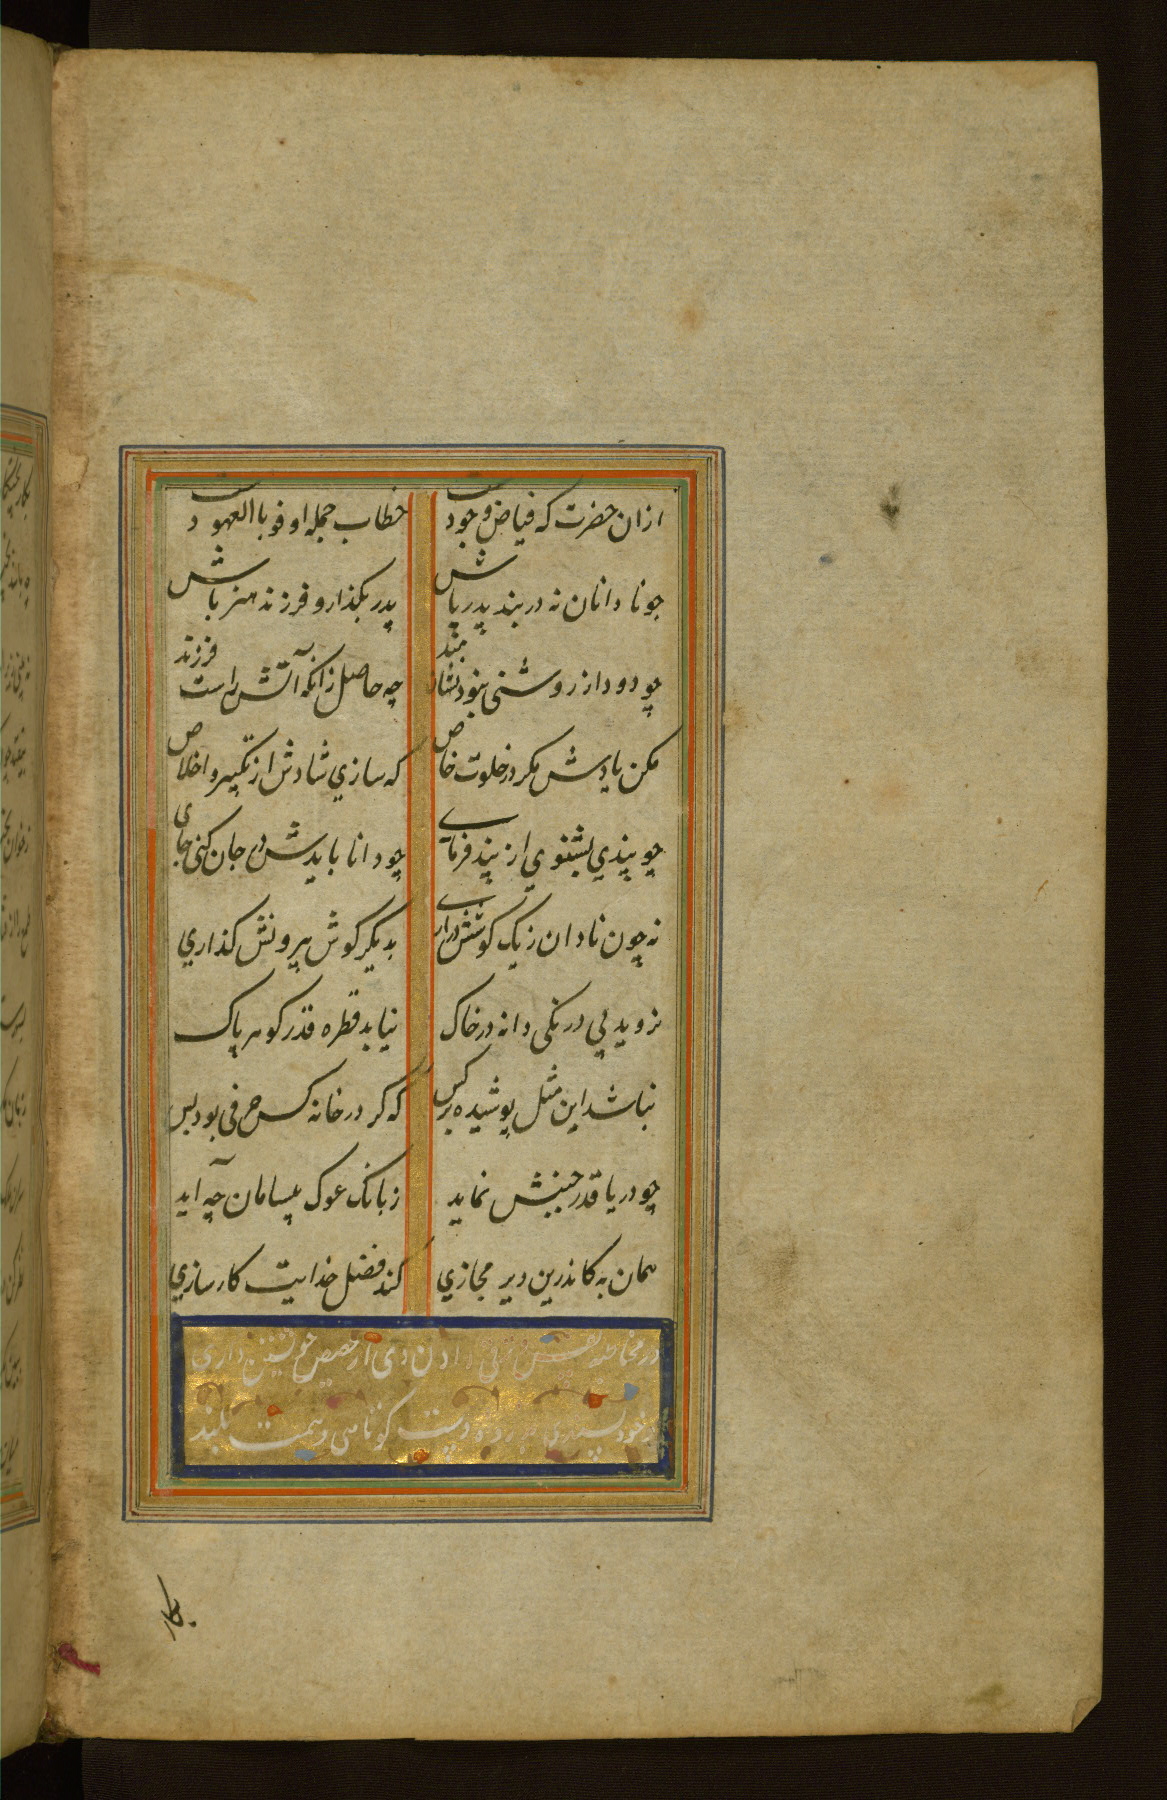 ازان حضرت که فیاض وجودست خطاب جمله اوفوا بالعهودست
چو نادانان نه در بند پدر باش پدر بکذار و فرزند هنر باش
چو دود از روشنی نبود نشانمند چه حاصل زانکه آتش راست فرزند
مکن یادش مکر در خلوت خاص که سازي شادش از تکبیر و اخلاص
چو پندي بشنوي از پند فرماے چو دانا بایدش در جان کنی جاي
نه چون نادان ز یک کوشش دراری بدیکر کوش بیرونش کذاري
نروید بي درنکی دانه در خاک نیابد قطره قدر کوهر پاک
نباشد این مثل پوشیده بر کس که کر در خانه کس حرفی بود بس
چو دریا قدر جنبش نماید ز بانک غوک بیسامان چه آید
همان به کاندرین دیر مجازي کند فضل خدایت کارسازي
در مخاطبه نفس دادن وی از حضیض خویشتن داری
کوتاهی و همت بلند
بکار